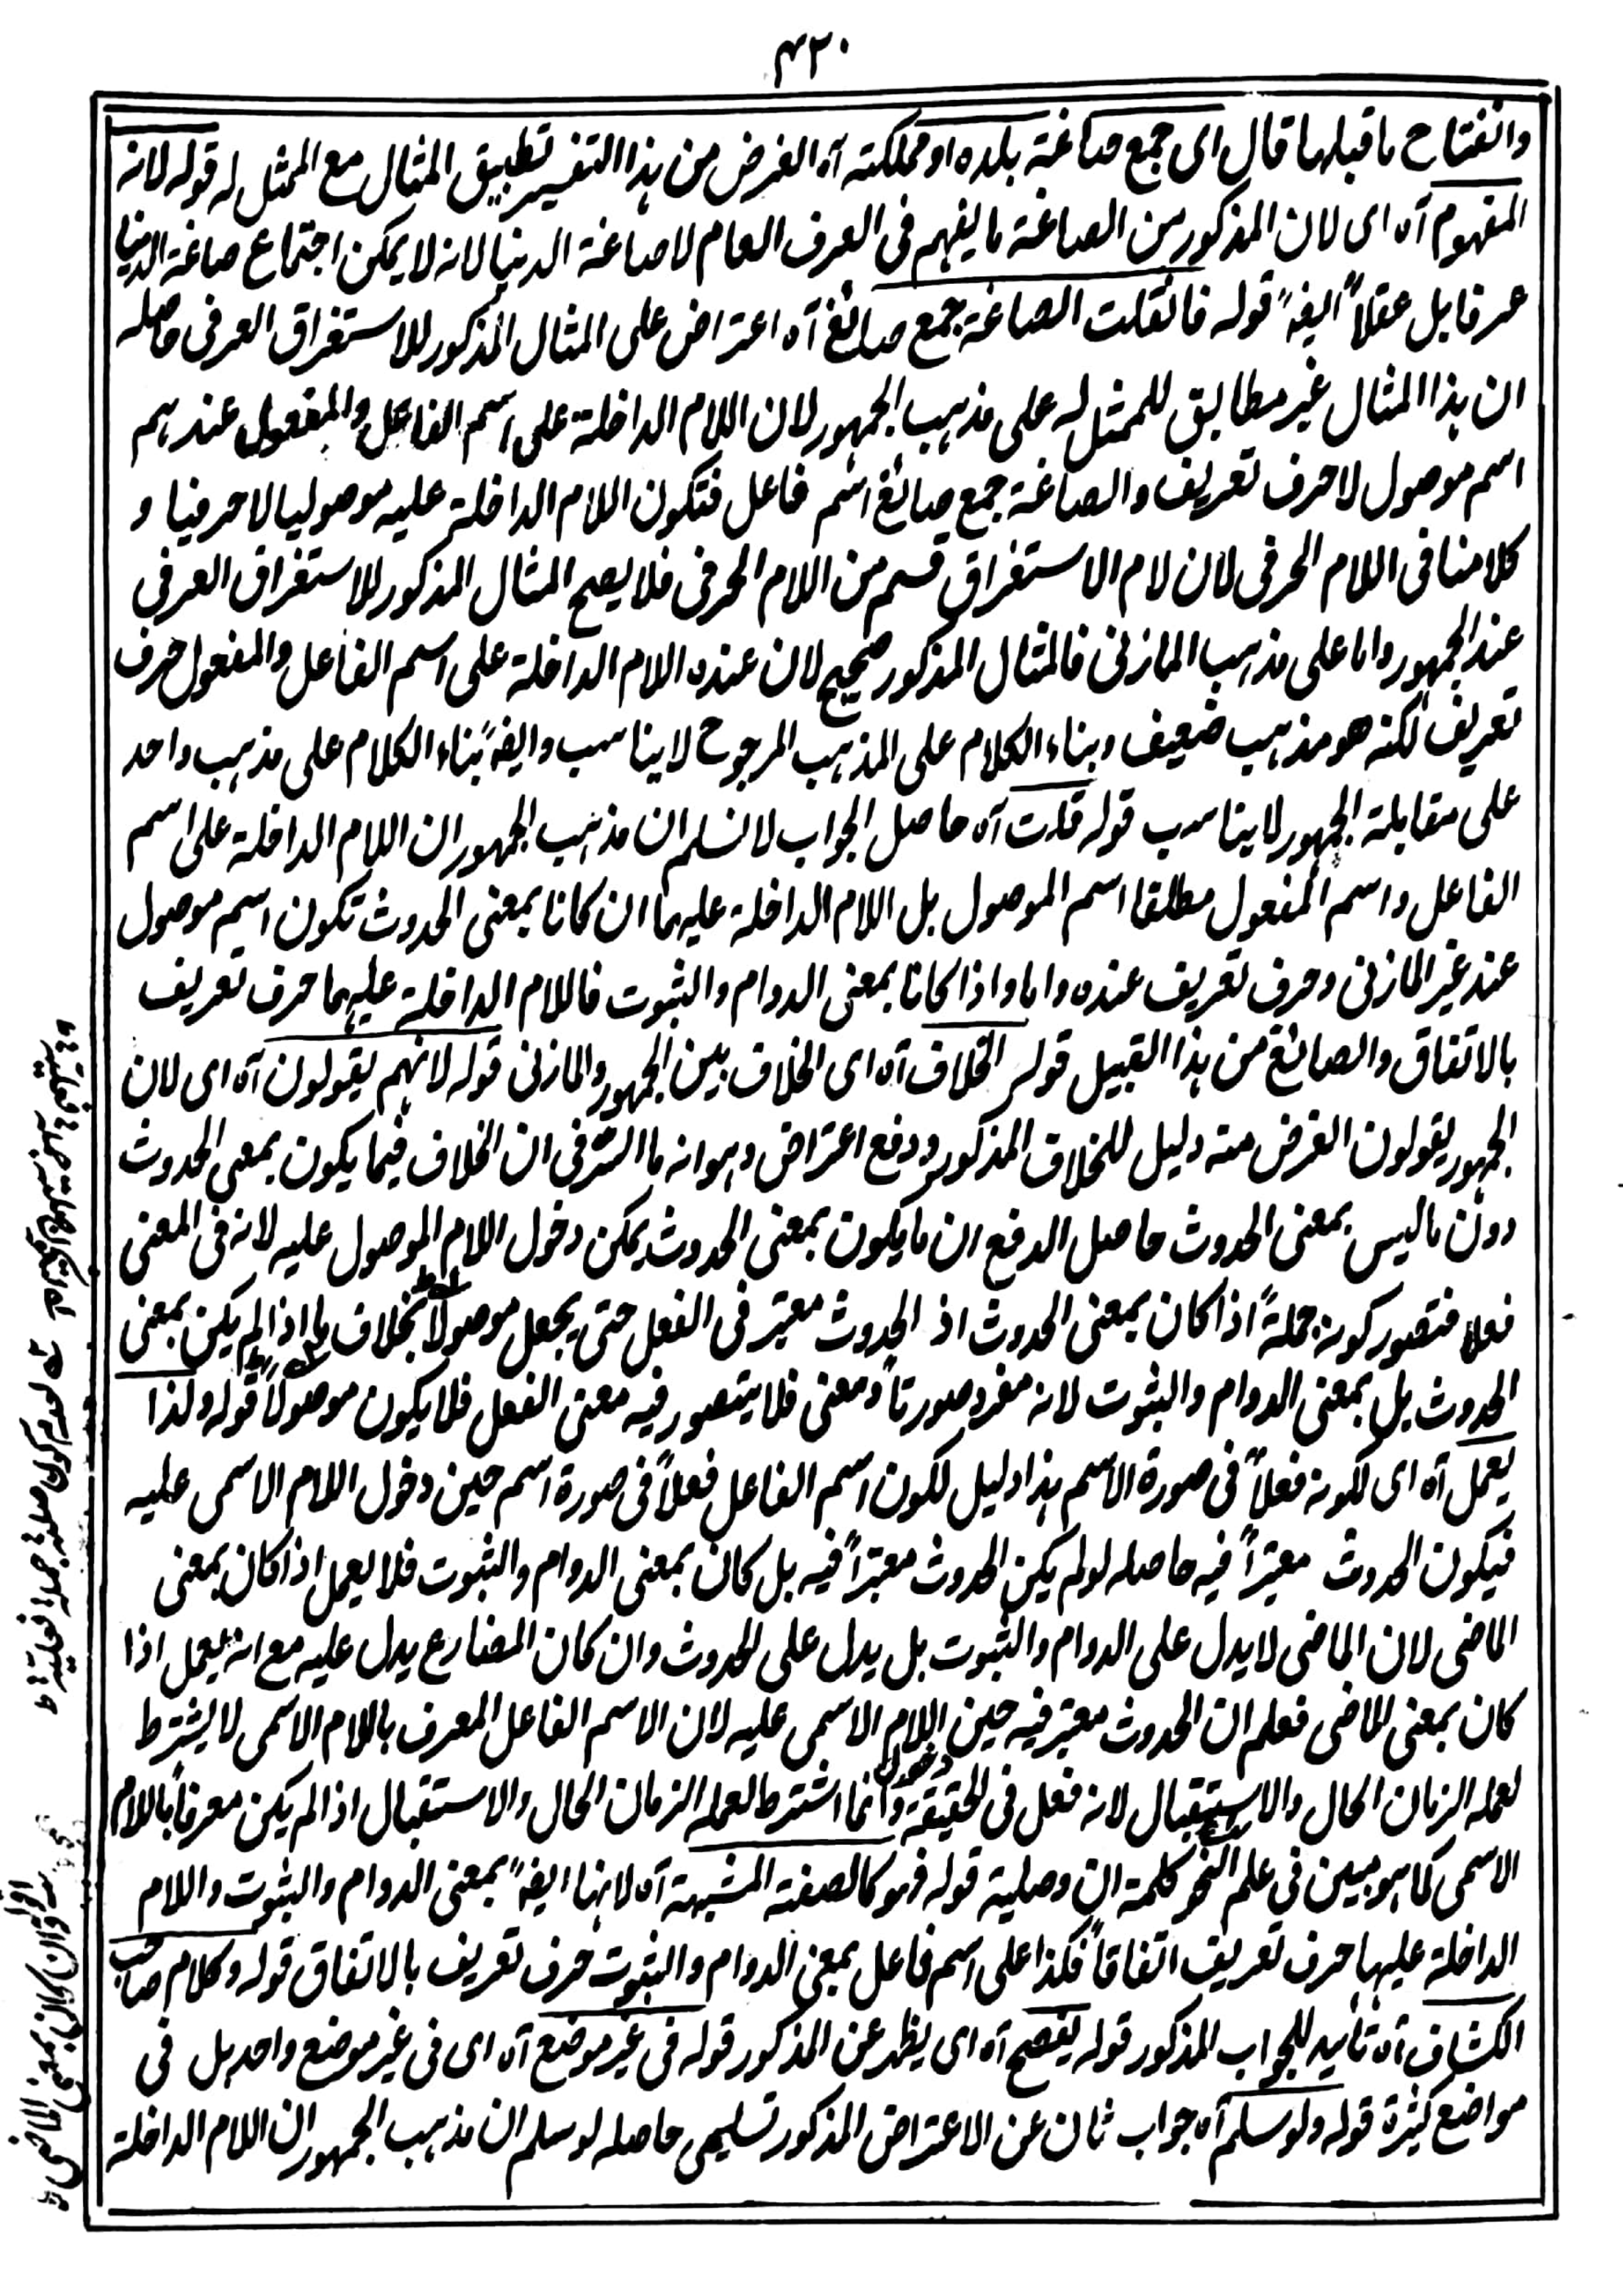 ۴۲۰
وانفتاح ما قبلها قال ای جمع صاغة بلده او مملکته آه الغرض من هذا التفسیر تطبیق المثال مع الممثل له قوله لانه
المفهوم آه ای لان المذکور من الصاغة ما یفهم فی العرف العام لا صاغة الدنیا لانه لا یمکن اجتماع صاغة الدنیا
عرفا بل عقلاً ایضاً قوله فان قلت الصاغة جمع صائغ آه اعتراض علی المثال المذکور للاستغراق العرفی حاصله
ان هذا المثال غیر مطابق للممثل له علی مذهب الجمهور لان اللام الداخلة علی اسم الفاعل والمفعول عندهم
اسم موصول لا حرف تعریف والصاغة جمع صائغ اسم فاعل فتکون اللام الداخلة علیه موصولیا لا حرفیا و
کلامنا فی اللام الحرفی لان لام الاستغراق قسم من اللام الحرفی فلا یصح المثال المذکور للاستغراق العرفی
عند الجمهور واما علی مذهب المازنی فالمثال المذکور صحیح لان عنده اللام الداخلة علی اسم الفاعل والمفعول حرف
تعریف لکنه هو مذهب ضعیف وبناء الکلام علی المذهب المرجوح لا یناسب وایضاً بناء الکلام علی مذهب واحد
علی مقابلة الجمهور لا یناسب قوله قلت آه حاصل الجواب لا نسلم ان مذهب الجمهور ان اللام الداخلة علی اسم
الفاعل واسم المفعول مطلقا اسم الموصول بل اللام الداخلة علیهما ان کانا بمعنی الحدوث تکون اسم موصول
عند غیر المازنی وحرف تعریف عنده واما واذا کانا بمعنی الدوام والثبوت فاللام الداخلة علیهما حرف تعریف
بالاتفاق والصائغ من هذا القبیل قوله الخلاف آه ای الخلاف بین الجمهور والمازنی قوله لانهم یقولون آه ای لان
الجمهور یقولون الغرض منه دلیل للخلاف المذکور ودفع اعتراض وهو انه ما السر فی ان الخلاف فیما یکون بمعنی الحدوث
دون ما لیس بمعنی الحدوث حاصل الدفع ان ما یکون بمعنی الحدوث یمکن دخول اللام الموصول علیه لانه فی المعنی
فعلا فتصور کونه جملةً اذا کان بمعنی الحدوث اذ الحدوث معتبر فی الفعل حتی یجعل موصولاً بخلاف ما اذا لم یکن بمعنی
الحدوث بل بمعنی الدوام والثبوت لانه مفرد صورتاً ومعنی فلا یتصور فیه معنی الفعل فلا یکون موصولاً قوله ولذا
یعمل آه ای لکونه فعلاً فی صورة الاسم هذا دلیل لکون اسم الفاعل فعلاً فی صورة اسم حین دخول اللام الاسمی علیه
فیکون الحدوث معتبراً فیه حاصله لو لم یکن الحدوث معتبراً فیه بل کان بمعنی الدوام والثبوت فلا یعمل اذا کان بمعنی
الماضی لان الماضی لا یدل علی الدوام والثبوت بل یدل علی الحدوث وان کان المضارع یدل علیه مع انه یعمل اذا
کان بمعنی الماضی فعلم ان الحدوث معتبر فیه حین دخول اللام الاسمی علیه لان الاسم الفاعل المعرف باللام الاسمی لا یشترط
لعمله الزمان الحال والاستقبال لانه فعل فی الحقیقة وانما اشترط لعمله الزمان الحال والاستقبال اذا لم یکن معرفاً باللام
الاسمی کما هو مبین فی علم النحو کلمة ان وصلیة قوله فهو کالصفة المشبهة آه لانها ایضاً بمعنی الدوام والثبوت واللام
الداخلة علیها حرف تعریف اتفاقاً فکذا علی اسم فاعل بمعنی الدوام والثبوت حرف تعریف بالاتفاق قوله وکلام صاحب
الکشاف آه تأیید للجواب المذکور قوله یفصح آه ای یظهر عن المذکور قوله فی غیر موضع آه ای فی غیر موضع واحد بل فی
مواضع کثیرة قوله ولو سلم آه جواب ثان عن الاعتراض المذکور تسلیمی حاصله لو سلم ان مذهب الجمهور ان اللام الداخلة